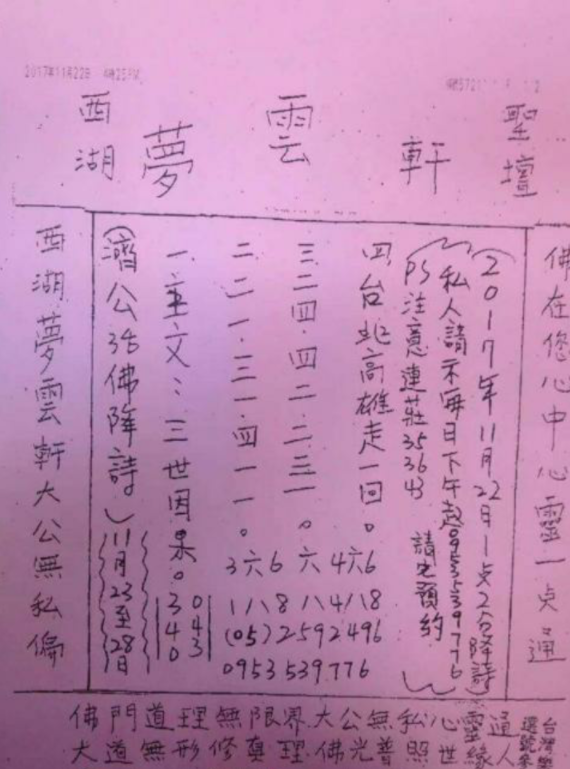 2017年11月22日
西湖 夢雲軒 聖壇
佛在您心中心靈一点通
(2017年11月22日1点2分降詩)
私人請示每日下午起0953539776
請先預約
PS注意連莊353643
四.台北高雄走一回。
三.二四.四二.二三一。
二.二一.三一.四一一。
一.主文:三世因果。
(濟公活佛降詩)11月23至28日
西湖夢雲軒大公無私偏
3六6 六 4六6
1八8 八4八8
043
340
(05)2592496
0953539776
佛門道理無限界大公無私心靈通
大道無形修真理佛光普照世緣人
台灣樂